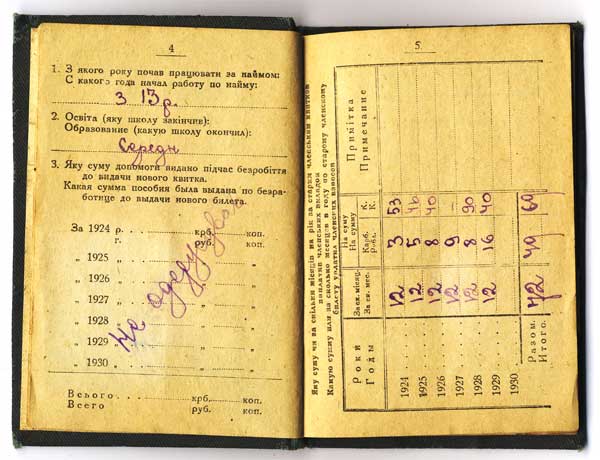 4
1. З якого року почав працювати за наймом:
С какого года начал работу по найму:
з 13 р.
2. Освіта (яку школу закінчив):
Образование (какую школу окончил):
Середн
3. Яку суму допомоги видано підчас безробіття
до видачи нового квитка.
Какая сумма пособия была выдана по безра-
ботице до выдачи нового билета.
За 1924 р. крб. коп.
г. руб. коп.
„ 1925 „ „
„ 1926 „ „
„ 1927 „ „
„ 1928 „ „
„ 1929 „ „
„ 1930 „ „
Не одержував
Всього крб. коп.
Всего руб. коп.
5.
Яку суму чи за скільки місяців на рік за старим членським квитком
поплатив членських вкладок
Какую сумму или за сколько месяцев в году по старому членскому
билету уплатил членских взносов
Роки За ск. місяц. На суму Примітка
Годы За ск. мес. На сумму Примечание
Карб. К.
Рубл. К.
1924 12 3 53
1925 12 5 46
1926 12 8 40
1927 12 9
1928 12 8 90
1929 12 16 40
1930
Разом. 72 49 69
Итого.